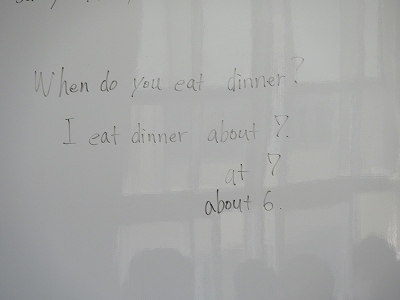 When do you eat dinner?
I eat dinner about 7.
at 7
about 6.